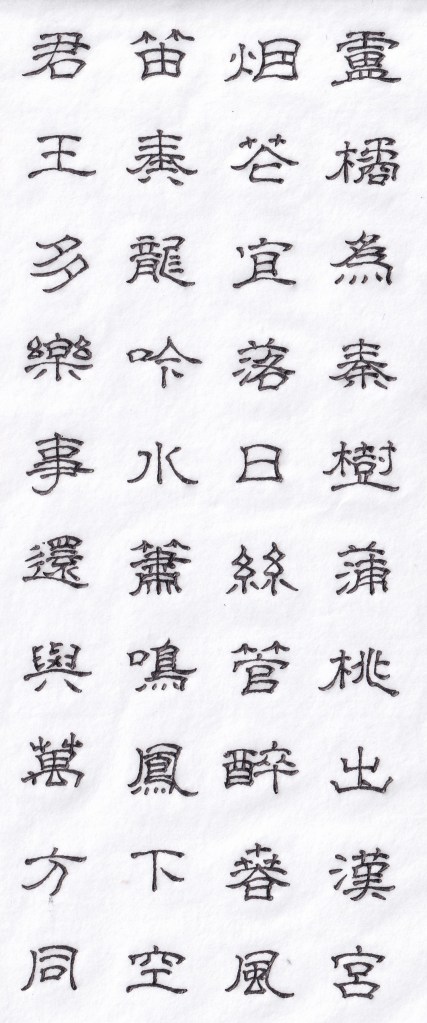 盧橘為秦樹蒲桃出漢宮
烟花宜落日絲管醉春風
笛奏龍吟水簫鳴鳳下空
君王多樂事還與萬方同